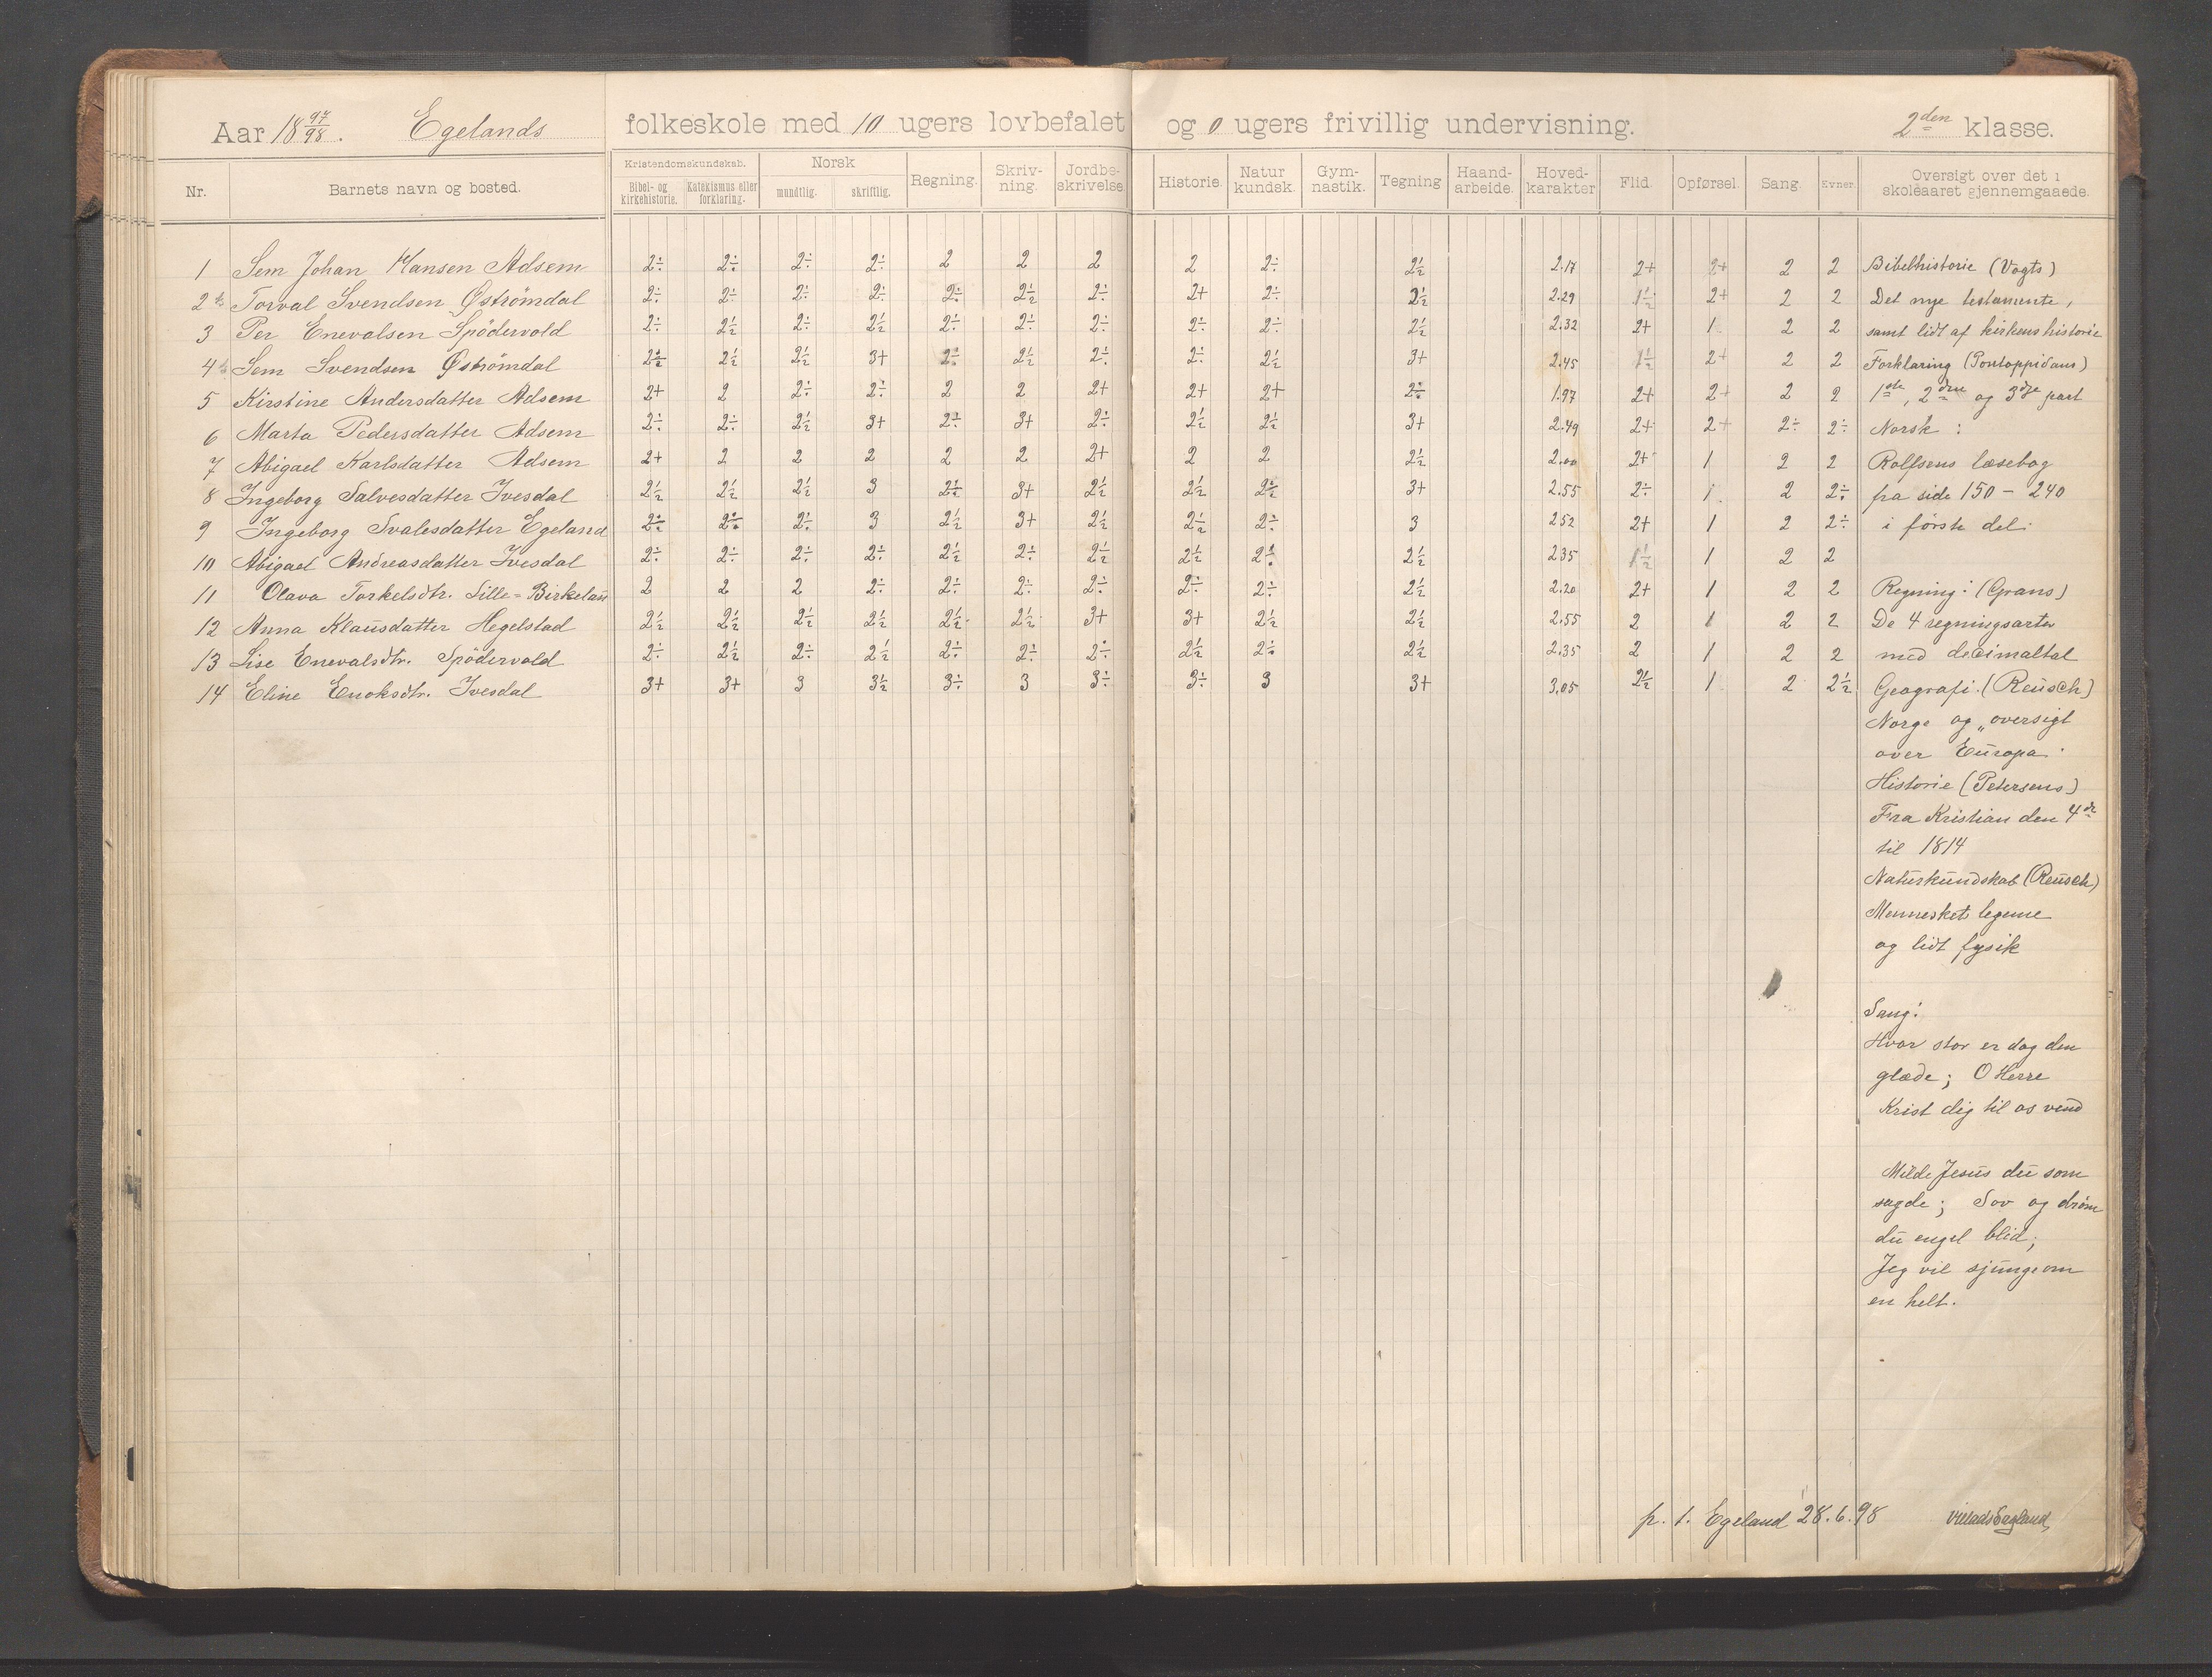 Aar 18 97/98. Egelands folkeskole med 10 ugers lovbefalet og 0 ugers frivillig undervisning. 2den klasse.
Nr. Barnets navn og bosted. Kristendomskundskab. Bibel- og kirkehistorie. Katekismus eller forklaring. Norsk mundtlig. skriftlig. Regning. Skriv-ning. Jordbe-skrivelse. Historie. Natur kundsk. Gym-nastik. Tegning Haand-arbeide. Hoved-karakter Flid. Opførsel. Sang. Evner. Oversigt over det i skoleaaret gjennemgaaede.
1 Sem Johan Hansen Adsem 2÷ 2÷ 2÷ 2÷ 2 2 2 2 2÷ 2½ 2.17 2+ 2+ 2 2 Bibelhistorie (Vogts)
2 Torval Svendsen Øströmdal 2÷ 2÷ 2÷ 2÷ 2÷ 2½ 2÷ 2+ 2÷ 2½ 2.29 1½ 2+ 2 2 Det nye testamente,
3 Per Enevalsen Spödervold 2÷ 2½ 2÷ 2½ 2÷ 2÷ 2÷ 2÷ 2÷ 2½ 2.32 2+ 1 2 2 samt lidt af kirkens historie
4 Sem Svendsen Øströmdal 2÷ 2½ 2½ 3+ 2÷ 2½ 2÷ 2÷ 2½ 3+ 2.45 1½ 2+ 2 2 Forklaring (Pontoppidans)
5 Kirstine Andersdatter Adsem 2+ 2 2÷ 2÷ 2 2 2+ 2+ 2+ 2÷ 1.97 2+ 2+ 2 2 1ste, 2den og 3dje part
6 Marta Pedersdatter Adsem 2÷ 2÷ 2½ 3+ 2÷ 3+ 2÷ 2½ 2½ 3+ 2.49 2+ 2+ 2÷ 2÷ Norsk :
7 Abigael Karlsdatter Adsem 2+ 2 2 2 2 2 2+ 2 2 2½ 2.00 2+ 1 2 2 Rolfsens læsebog
8 Ingeborg Salvesdatter Ivesdal 2½ 2½ 2½ 3 2½ 3+ 2½ 2½ 2÷ 3+ 2.55 2÷ 1. 2 2÷ fra side 150 - 240
9 Ingeborg Svalesdatter Egeland 2÷ 2÷ 2÷ 3 2½ 3+ 2½ 2½ 2÷ 3 2 52 2+ 1 2 2÷ i förste del.
10 Abigael Andreasdatter Ivesdal 2÷ 2÷ 2÷ 2÷ 2½ 2÷ 2½ 2½ 2÷ 2½ 2 35 1½ 1 2 2
11 Olava Torkelsdtr. Lille-Birkeland 2 2 2 2÷ 2÷ 2÷ 2÷ 2÷ 2÷ 2½ 2.20 2+ 1 2 2 Regning: (Grans)
12 Anna Klausdatter Hegelstad 2½ 2½ 2½ 2½ 2½ 2½ 3+ 3+ 2½ 2½ 2.55 2 1 2 2 De 4 regningsarter
13 Lise Enevalsdtr. Spödervold 2÷ 2½ 2÷ 2½ 2÷ 2÷ 2÷ 2½ 2÷ 2½ 2.35 2 1 2 2 med decimaltal
14 Eline Enoksdtr. Ivesdal 3+ 3+ 3 3½ 3÷ 3 3÷ 3÷ 3 3+ 3.05 2½ 1 2 2½ Geografi. (Reusch)
Norge og oversigt
over Europa.
Historie (Petersens)
Fra Kristian den 4de
til 1814
Naturkundskab (Reusch)
Mennesket legeme
og lidt fysik
Sang:
Hvor stor er dog den
glæde; O Herre
Krist dig til os vend
Milde Jesus du som
sagde; Sov og dröm
du engel blid;
Jeg vil sjunge om
en helt.
p. t. Egeland 28.6.98